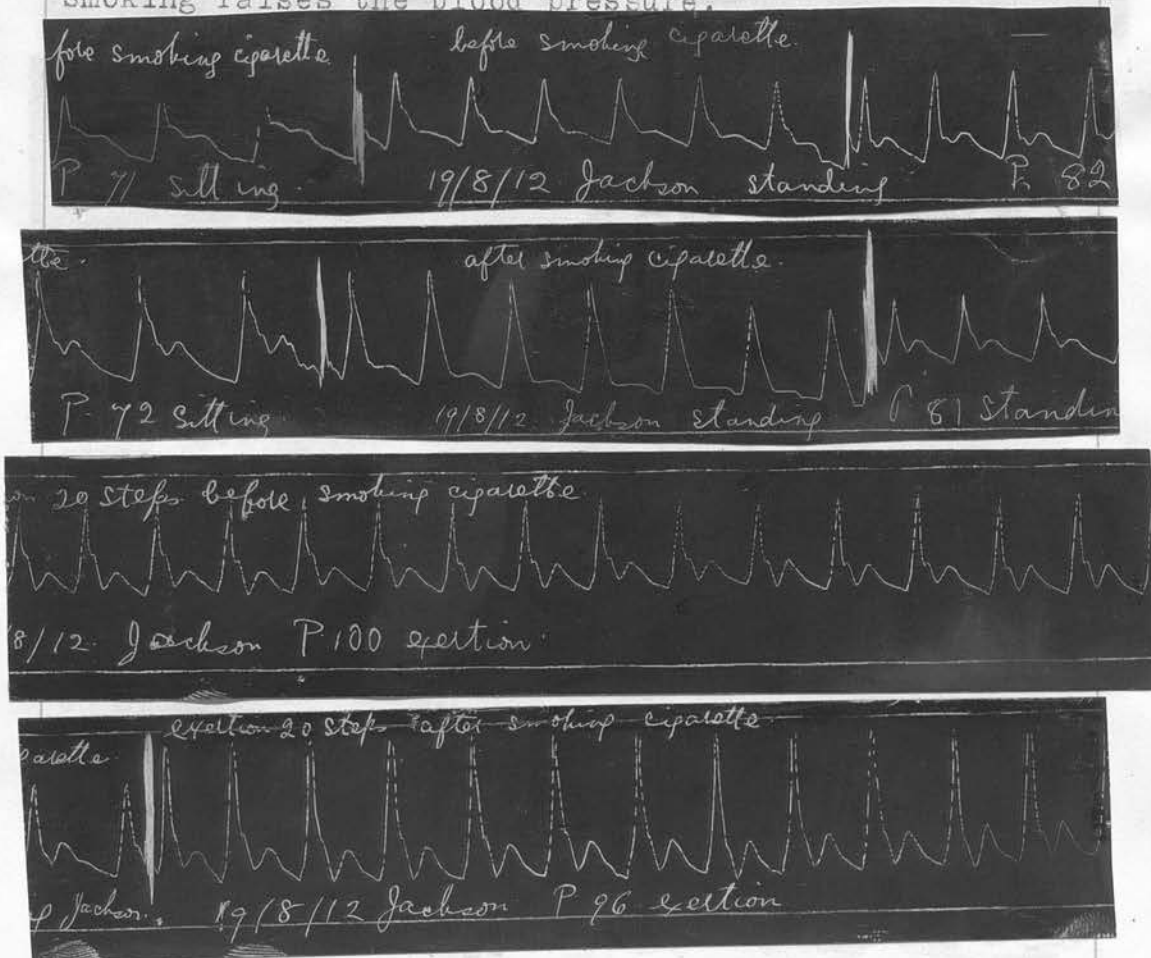 smoking raises the blood pressure.
fore smoking cigarette.
before smoking cigarette.
P 71 sitting.
19/8/12 Jackson standing
P. 82
tte.
after smoking cigarette.
P. 72 Sitting
19/8/12 Jackson standing
P 81 Standin
on 20 steps before smoking cigarette
8/12. Jackson P 100 exertion.
exertion 20 steps after smoking cigarette
arette.
Jackson.
19/8/12 Jackson P 96 exertion